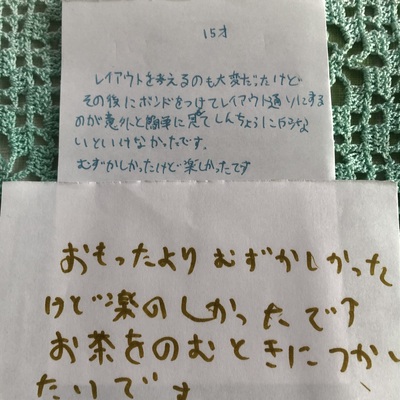 15才
レイアウトを考えるのも大変だったけど
その後にボンドをつけてレイアウト通りにする
のが意外と簡単に見えてしんちょうにやらな
いといけなかったです。
むずかしかったけど楽しかったです
おもったよりむずかしかった
けど楽のしかったです
お茶をのむときにつかい
たいです